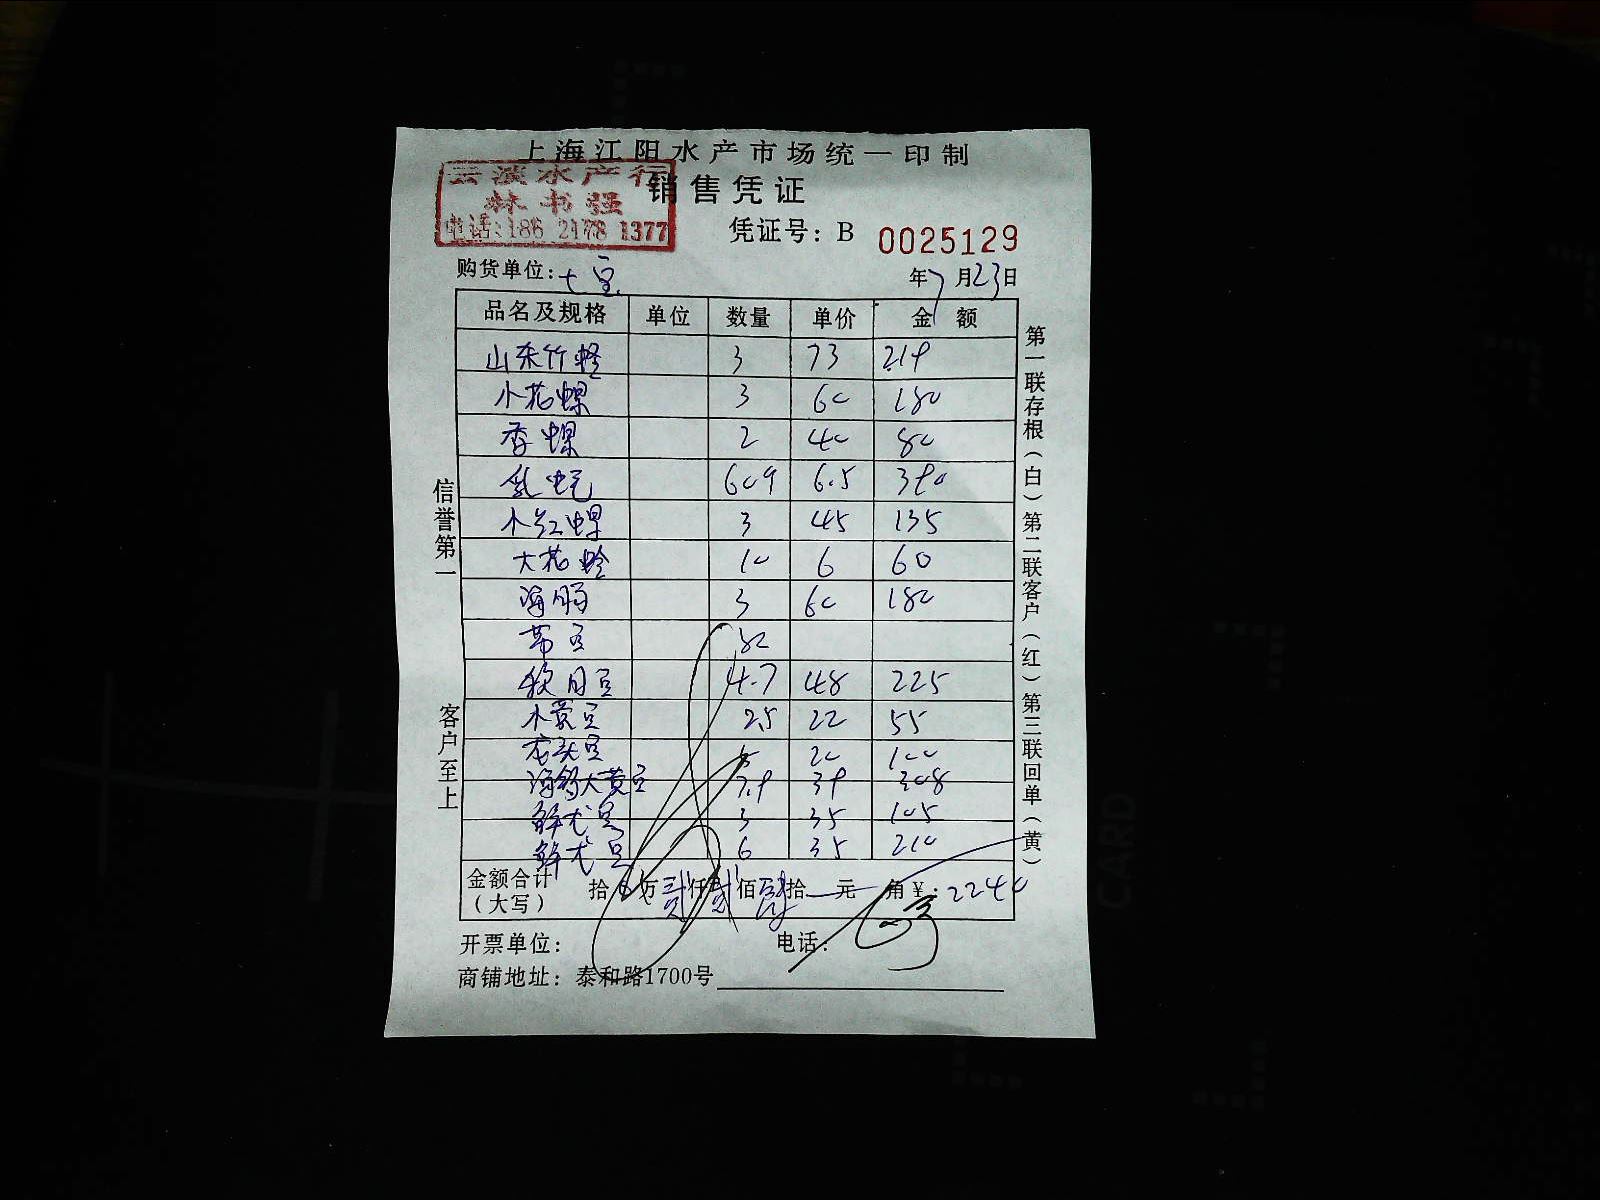 上海江阳水产市场统一印制
云波水产行
林书强
电话:186 2178 1377
销售凭证
凭证号: B 0025129
购货单位: 七宝
年7月23日
品名及规格 单位 数量 单价 金额
山东竹蛏 3 73 219
小花螺 3 60 180
香螺 2 40 80
乳蚝 60个 6.5 390
小红螺 3 45 135
大花蛤 10 6 60
海肠 3 60 180
32
4.7 48 225
小黄豆 2.5 22 55
龙头豆 5 20 100
海钓大黄豆 7.9 39 308
鲜尤豆 3 35 105
鲜尤豆 6 35 210
金额合计
(大写) 拾 万 贰 仟 贰 佰 拾 元 角 ¥: 2240
开票单位:
电话:
商铺地址: 泰和路1700号
信誉第一
客户至上
第一联存根(白)第二联客户(红)第三联回单(黄)
CARD